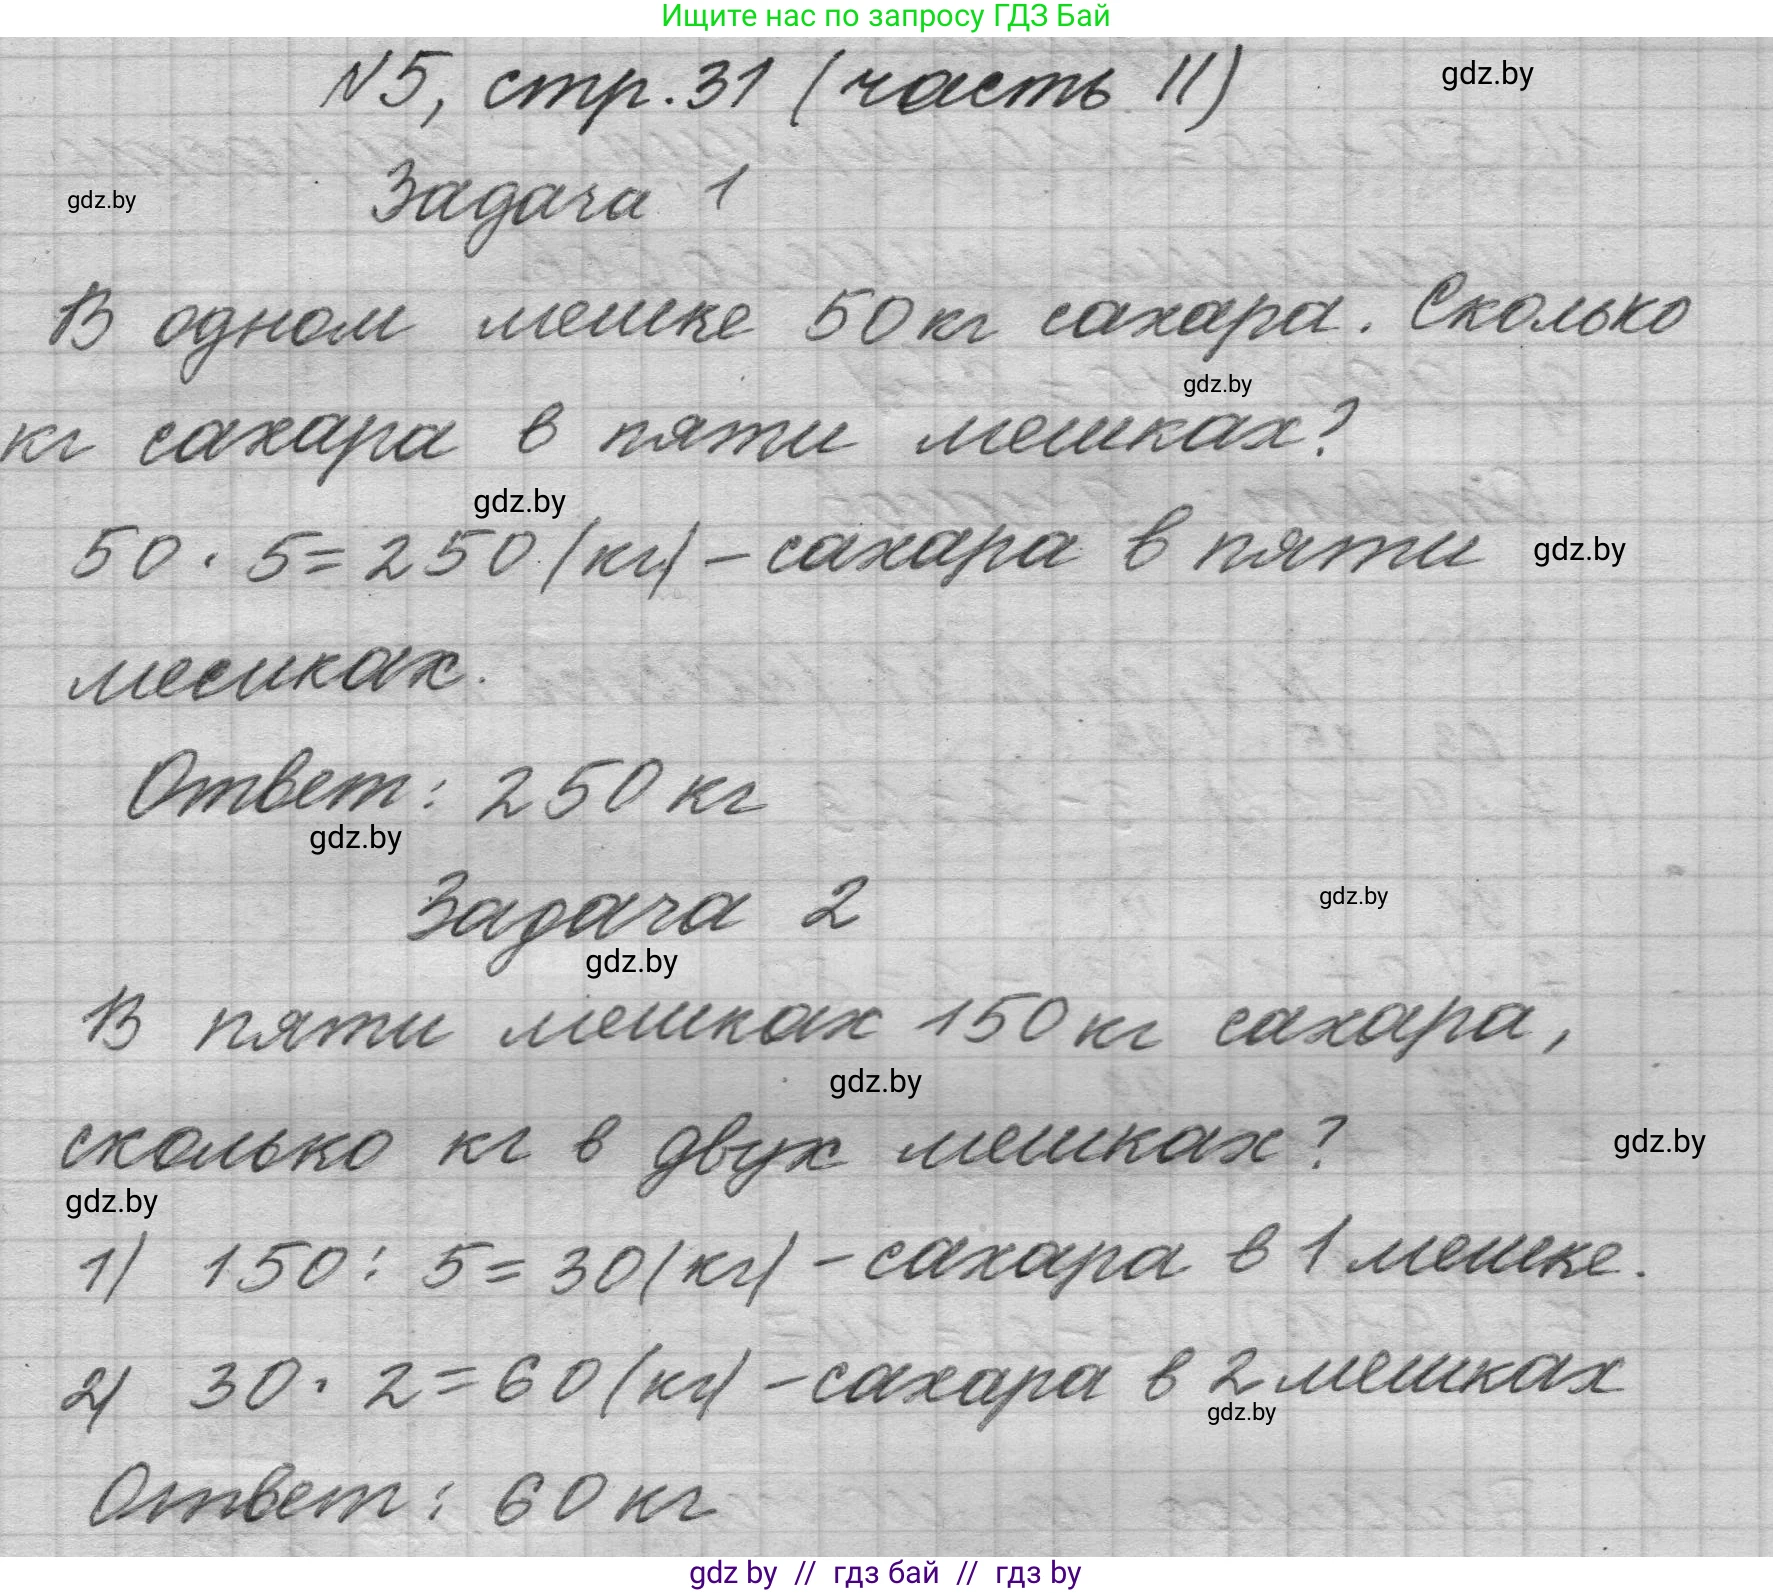 Ищите нас по запросу ГДЗ Бай
N5, стр. 31 (часть II)
gdz.by
Задача 1
gdz.by
В одном мешке 50 кг сахара. Сколько
gdz.by
кг сахара в пяти мешках?
gdz.by
50 · 5 = 250 (кг) – сахара в пяти
gdz.by
мешках.
Ответ: 250 кг
gdz.by
Задача 2
gdz.by
gdz.by
В пяти мешках 150 кг сахара,
gdz.by
сколько кг в двух мешках?
gdz.by
gdz.by
1) 150 : 5 = 30 (кг) – сахара в 1 мешке.
2) 30 · 2 = 60 (кг) – сахара в 2 мешках
gdz.by
Ответ: 60 кг
gdz by // гдз бай // гдз by